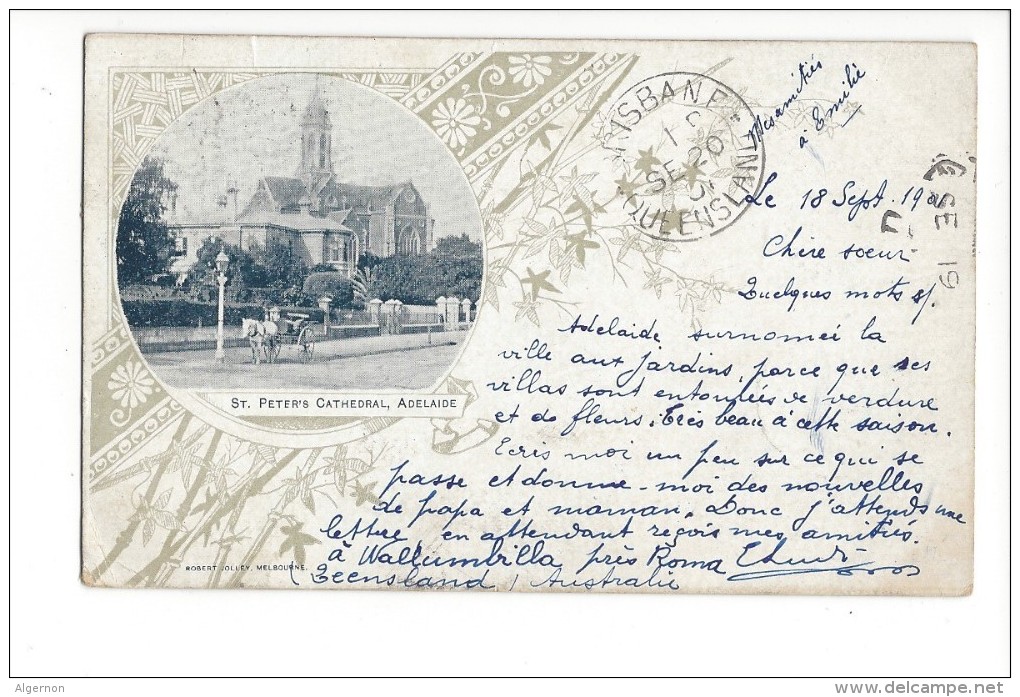 Mes amitiés
à Emilie
BRISBANE
1 S
SE 26
01
QUEENSLAND
SE 19
Le 18 Sept. 190
Chère soeur
Quelques mots s/.
Adelaide surnomeé la
ville aux jardins, parce que ses
villas sont entourées de verdure
et de fleurs. Très beau à cette saison.
Ecris moi un peu sur ce qui se
passe et donne-moi des nouvelles
de papa et maman. Donc j'attends une
lettre, en attendant reçois mes amitiés.
à Wallumbilla près Roma
Qeensland, Australie
ST. PETER'S CATHEDRAL, ADELAIDE
ROBERT JOLLEY, MELBOURNE.
Algernon
www.delcampe.net